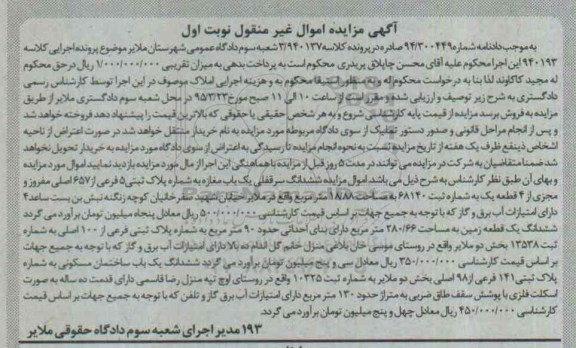 آگهی مزایده اموال غیر منقول نوبت اول
به موجب دادنامه شماره ۹۴/۳۰۰۴۴۹ صادره در پرونده کلاسه ۳/۹۴۰۱۳۷ شعبه سوم دادگاه عمومی شهرستان ملایر موضوع پرونده اجرایی کلاسه
۹۴۰۱۹۳ این اجرا محکوم علیه آقای محسن چاپلاق پریدری محکوم است به پرداخت بدهی به میزان تقریبی ۱/۰۰۰/۰۰۰/۰۰۰ ریال در حق محکوم
له مجید کاکاوند لذا بنا به درخواست محکوم له و به منظور استیفا محکوم به و هزینه اجرایی املاک موصوف در این اجرا توسط کارشناس رسمی
دادگستری به شرح زیر توصیف و ارزیابی شده و مقرر است از ساعت ۱۰ الی ۱۱ صبح مورخ ۹۵/۳/۲۳ در محل شعبه سوم دادگستری ملایر از طریق
مزایده به فروش برسد مزایده از قیمت پایه کارشناسی شروع و به هر شخص حقیقی یا حقوقی که بالاترین قیمت را پیشنهاد دهد فروخته خواهد شد
و پس از انجام مراحل قانونی و صدور دستور تملیک از سوی دادگاه مربوطه مورد مزایده به نام خریدار منتقل خواهد شد در صورت اعتراض از ناحیه
اشخاص ذینفع ظرف یک هفته از تاریخ مزایده نسبت به نحوه انجام مزایده تا رسیدگی به اعتراض از سوی دادگاه مورد مزایده به خریدار تحویل نخواهد
شد ضمنا متقاضیان به شرکت در مزایده می توانند در مدت ۵ روز قبل از مزایده با هماهنگی این اجرا از مال مورد مزایده بازدید نمایند اموال مورد مزایده
و بهای آن طبق نظر کارشناس به شرح ذیل می باشد اموال مزایده ششدانگ سرقفلی یک باب مغازه به شماره پلاک ثبتی ۵ فرعی از ۶۵۷ اصلی مفروز و
مجزی از ۴ قطعه یک به شماره ثبت ۶۸۱۴۰ به مساحت ۱۸/۸۸ متر مربع واقع در ملایر خیابان شهید سفرخلیان کوچه زنگنه نبش بن بست ساعد ۴
دارای امتیازات آب برق و گاز که با توجه به جمیع جهات بر اساس قیمت کارشناسی ۵۰۰/۰۰۰/۰۰۰ ریال معادل پنجاه میلیون تومان برآورد می گردد
ششدانگ یک قطعه زمین به مساحت ۲۸۰/۶۶ متر مربع دارای بنای احداثی حدود ۹۰ متر مربع به شماره پلاک ثبتی فرعی از ۱۰۰ اصلی به شماره
ثبت ۱۳۵۳۸ بخش دو ملایر واقع در روستای موسی خان بلاغی منزل خشم گل اندام ده بالا دارای امتیازات آب برق و گاز که با توجه به جمیع جهات
بر اساس قیمت کارشناسی ۳۵۰/۰۰۰/۰۰۰ ریال معادل سی و پنج میلیون تومان برآورد می گردد ششدانگ یک باب ساختمان مسکونی به شماره
پلاک ثبتی ۱۴۱ فرعی از ۹۸ اصلی بخش دو ملایر به شماره ثبت ۱۰۳۲۵ واقع در روستای اوچ تپه منزل رضا قاسمی دارای قدمت ده ساله به صورت
اسکلت فلزی با پوشش سقف طاق ضربی به متراژ حدود ۱۳۰ متر مربع دارای امتیازات آب برق گاز و تلفن که با توجه به جمیع جهات بر اساس قیمت
کارشناسی ۴۵۰/۰۰۰/۰۰۰ ریال معادل چهل و پنج میلیون تومان برآورد می گردد.
۱۹۳ مدیر اجرای شعبه سوم دادگاه حقوقی ملایر